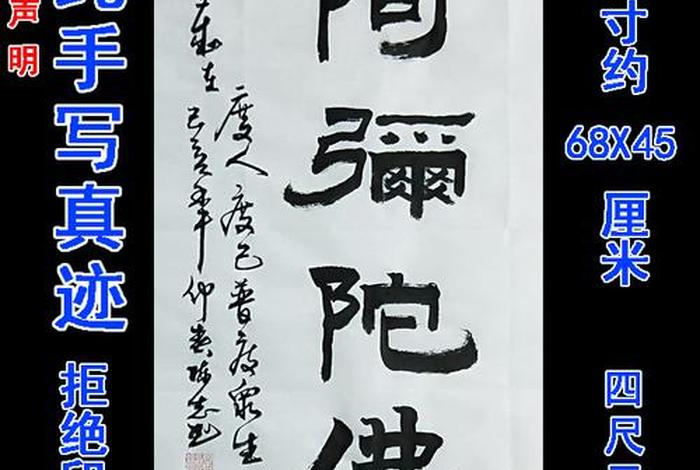 声明
手写真迹
拒绝
阿彌陀佛
度人度己普度眾生
己亥年
寸约
68X45
厘米
四尺